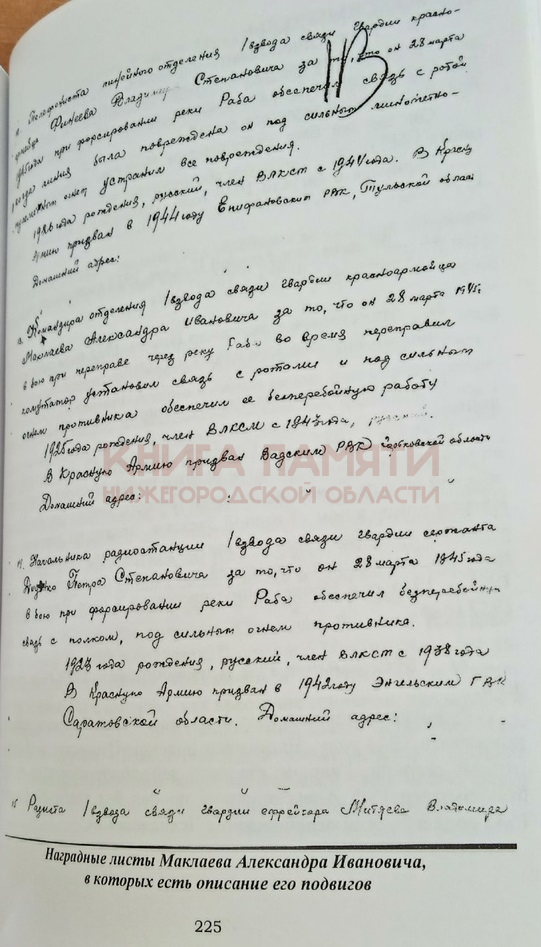 Телефониста линейного отделения 1 взвода связи гвардии красно-
армейца Финеева Владимира Степановича за то, что он 28 марта
1945 года при форсировании реки Раба обеспечил связь с ротой
когда линия была повреждена он под сильным минометно-
пулеметным огнем устранил все повреждения.
1926 года рождения, русский, член ВЛКСТ с 1944 года. В Красную
Армию призван в 1944 году Епифановским РВК, Тульской области
Домашний адрес:
Командира отделения 1 взвода связи гвардии красноармейца
Маклаева Александра Ивановича за то, что он 28 марта 1945г.
в бою при переправе через реку Раба во время переправил
коммутатор установил связь с ротами и под сильным
огнем противника обеспечил ее бесперебойную работу
1925 года рождения, член ВЛКСМ с 1943 года,
В Красную Армию призван Вадским РВК Горьковской области
Домашний адрес:
КНИГА ПАМЯТИ
НИЖЕГОРОДСКОЙ ОБЛАСТИ
11. Начальника радиостанции 1 взвода связи гвардии сержанта
Петра Степановича за то, что он 28 марта 1945 года
в бою при форсировании реки Раба обеспечил бесперебойную
связь с полком, под сильным огнем противника.
1923 года рождения, русский, член ВЛКСТ с 1938 года
В Красную Армию призван в 1942 году Энгельским ГВК
Саратовской области. Домашний адрес:
Радиста 1 взвода связи гвардии ефрейтора Митяева Владимира
Наградные листы Маклаева Александра Ивановича,
в которых есть описание его подвигов
225